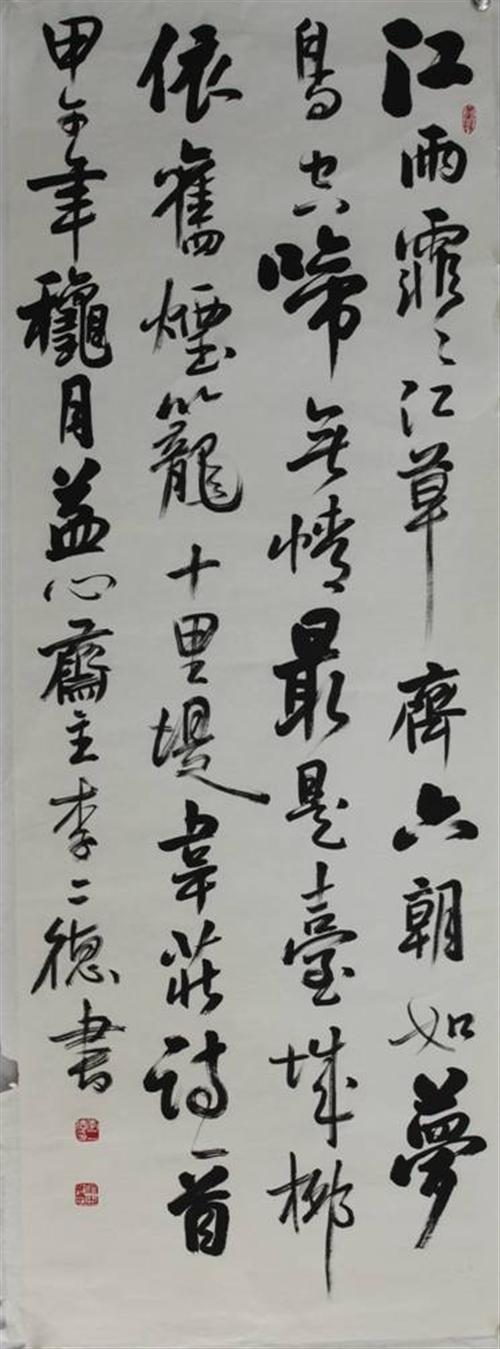 江雨霏々江草齊六朝如夢
鳥空啼無情最是臺城柳
依舊煙籠十里堤韋莊詩一首
甲午年穐月益心齋主李二德書